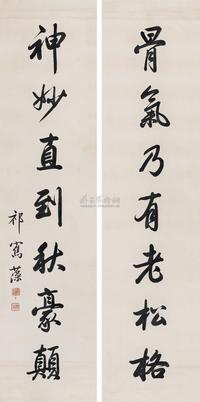 骨氣乃有老松格
神妙直到秋豪顛
祁寯藻